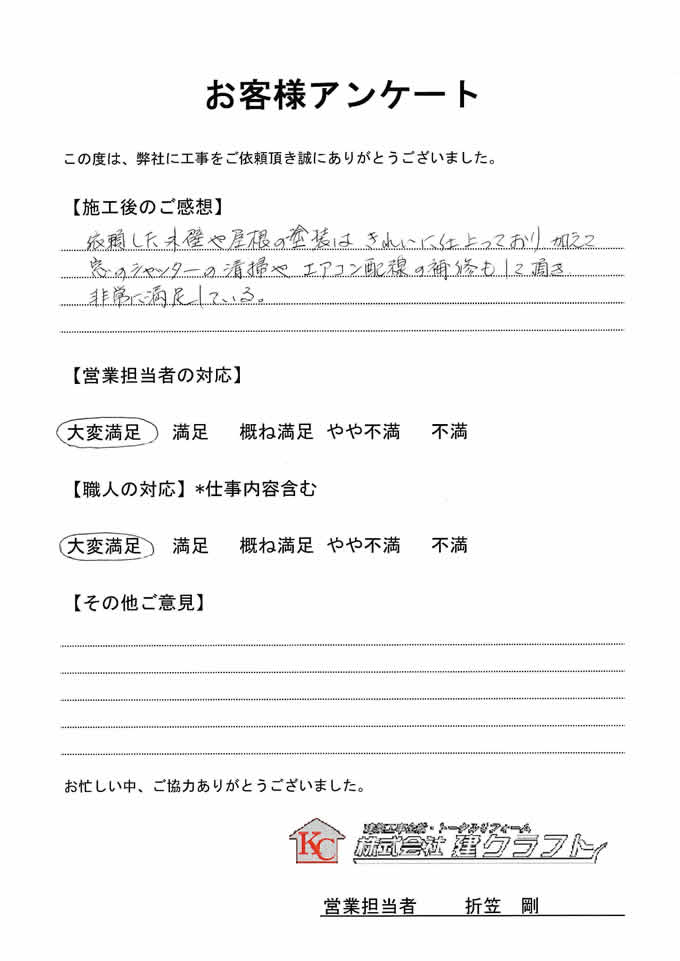 お客様アンケート
この度は、弊社に工事をご依頼頂き誠にありがとうございました。
【施工後のご感想】
依頼した外壁や屋根の塗装は きれいに仕上っており 加えて
窓のシャッターの清掃や エアコン配線の補修もして頂き
非常に満足している。
【営業担当者の対応】
大変満足 満足 概ね満足 やや不満 不満
【職人の対応】*仕事内容含む
大変満足 満足 概ね満足 やや不満 不満
【その他ご意見】
お忙しい中、ご協力ありがとうございました。
建築工事全般・トータルリフォーム
KC 株式会社 建クラフト
営業担当者 折笠 剛